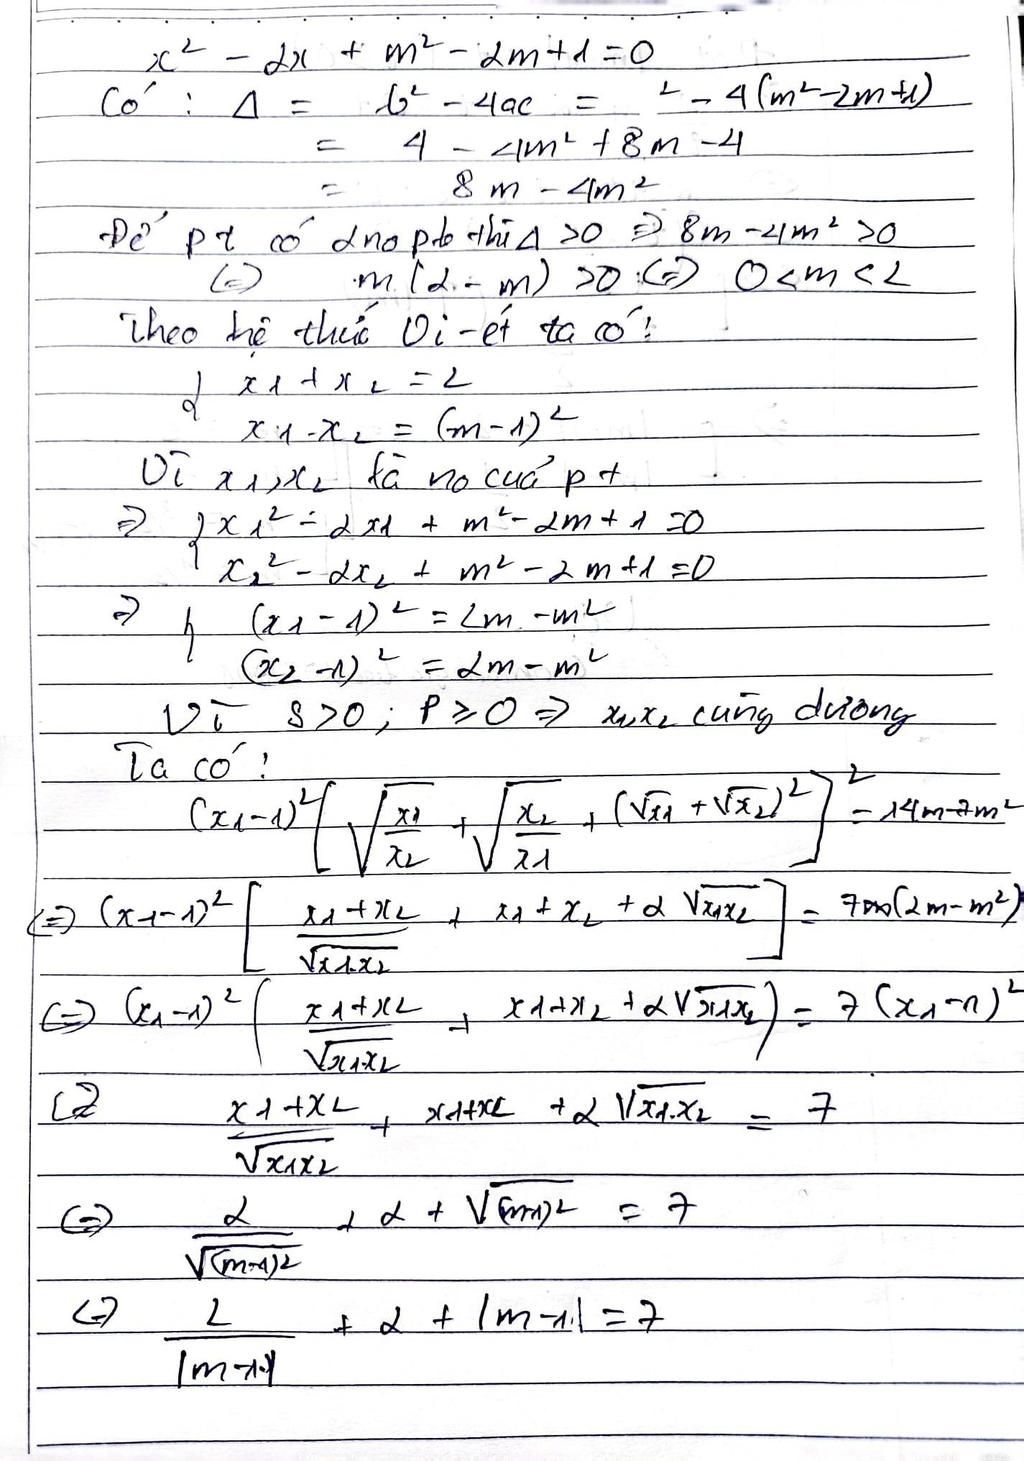 x² - 2x + m² - 2m + 1 = 0
Có : Δ = b² - 4ac = ² - 4(m² - 2m + 1)
= 4 - 4m² + 8m - 4
= 8m - 4m²
Để pt có 2 no pb thì Δ > 0 => 8m - 4m² > 0
(=) m(2 - m) > 0 (=) 0 < m < 2
Theo hệ thức Vi-ét ta có:
{ x1 + x2 = 2
x1.x2 = (m-1)²
Vì x1, x2 là no của pt
=> { x1² - 2x1 + m² - 2m + 1 = 0
x2² - 2x2 + m² - 2m + 1 = 0
=> { (x1 - 1)² = 2m - m²
(x2 - 1)² = 2m - m²
Vì S > 0 ; P ≥ 0 => x1, x2 cùng dương
Ta có:
(x1-1)² [ √(x1/x2) + √(x2/x1) + (√x1 + √x2)² ]² = 14m - 7m²
(=) (x1-1)² [ (x1+x2)/√(x1.x2) + x1 + x2 + 2√(x1x2) ] = 7(2m - m²)
(=) (x1-1)² ( (x1+x2)/√(x1.x2) + x1+x2 + 2√(x1x2) ) = 7(x1-1)²
(=) (x1+x2)/√(x1x2) + x1+x2 + 2√(x1.x2) = 7
(=) 2/√((m-1)²) + 2 + √((m-1)²) = 7
(=) 2/|m-1| + 2 + |m-1| = 7